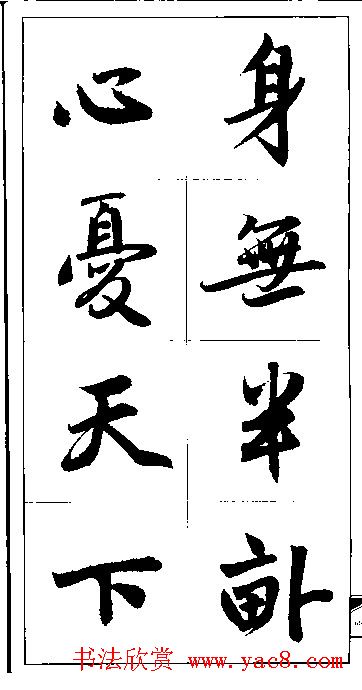 身無半畝
心憂天下
书法欣赏 www.yac8.com